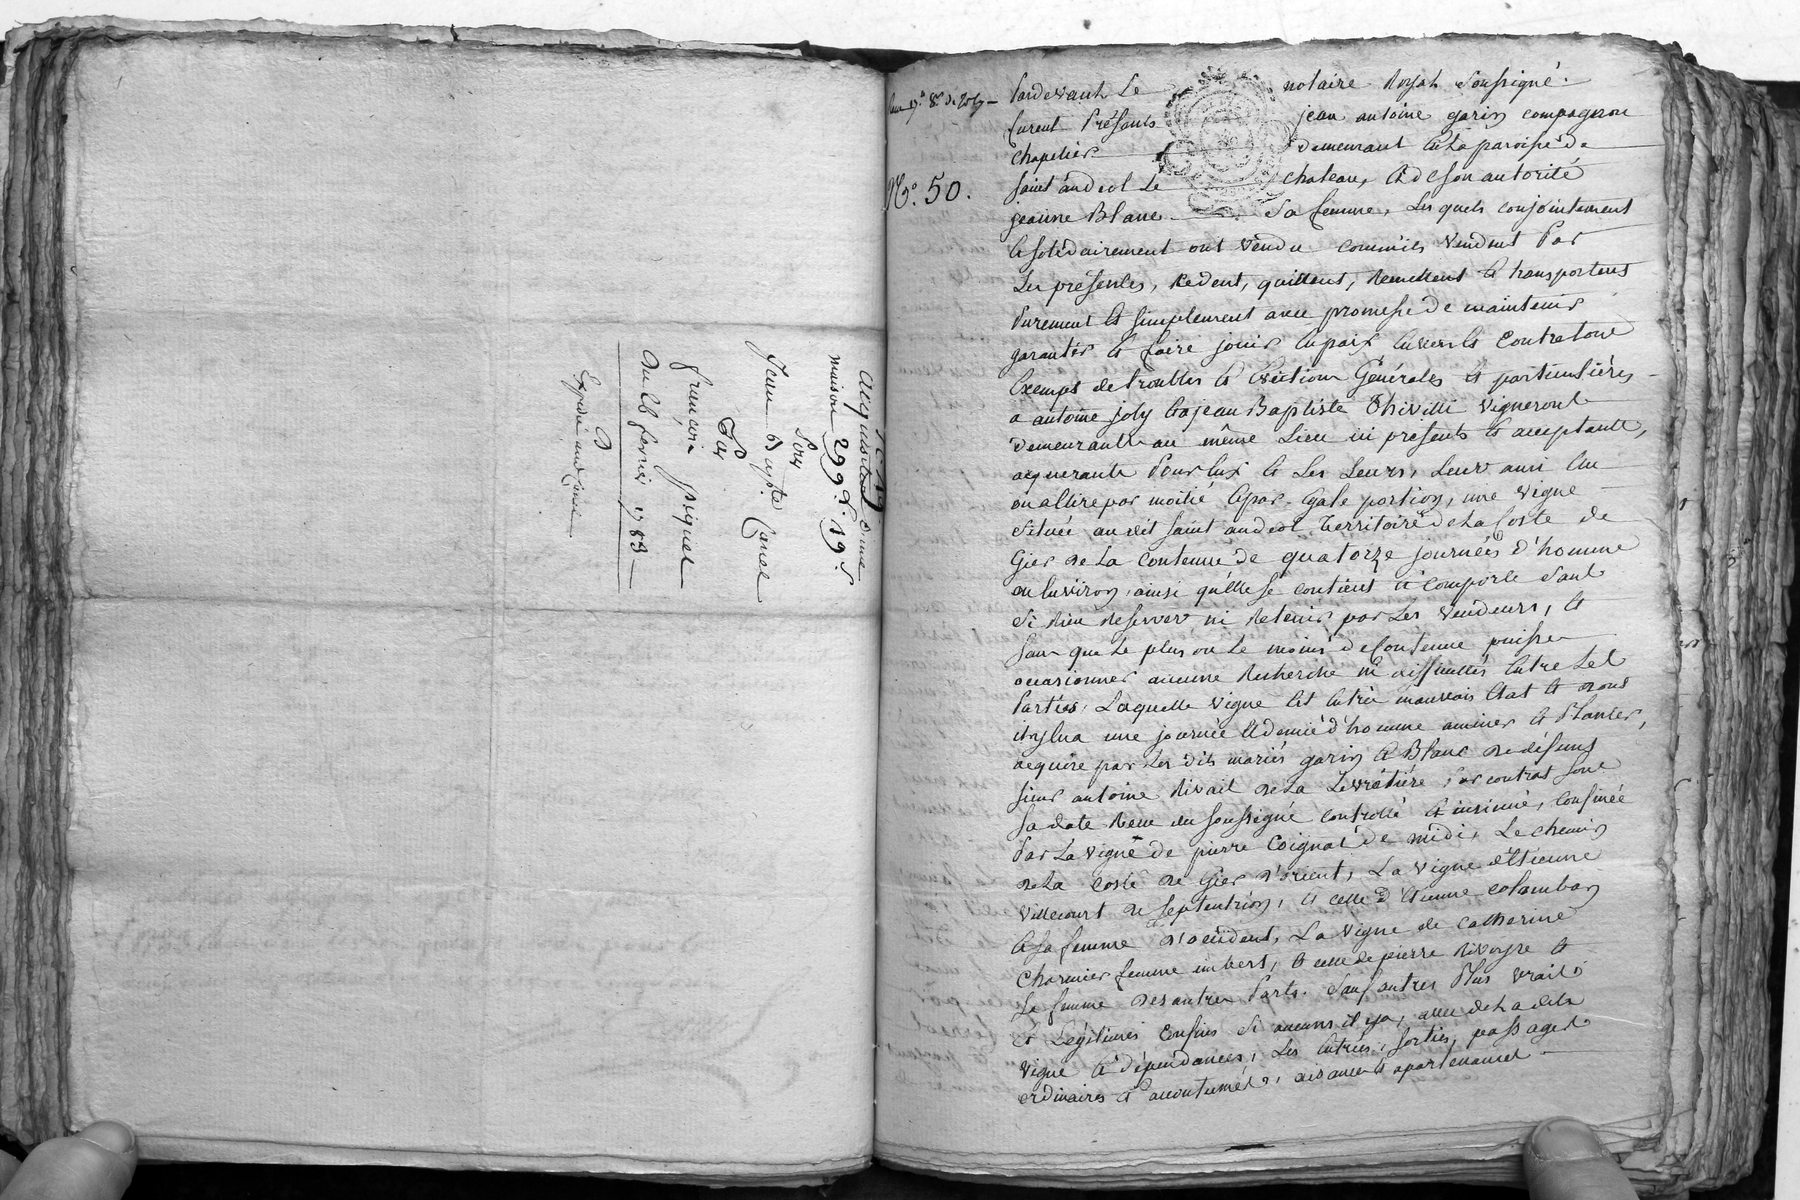 acquisition d'une
maison 299 L. 19 s.
Pour
Jean Bapte. Canel
Par
françois piquet
Du 26 fevrier 1783
Expedié audit Canel
No. 50.
Pardevant Le notaire Royal Soussigné
furent Présents jean antoine garin compagnon
chapelier demeurant en La paroisse de
saint andeol Le chateau, & de son autorité
jeanne Blanc Sa femme, Lesquels conjointement
& solidairement ont vendu comm'ils vendent Par
Les présentes, cedent, quittent, remettent & transportent
Purement & simplement avec promesse de maintenir
garantir & faire jouir en paix envers & Contre tous
Exemps de troubles & Evictions Générales & particulières
a antoine joly & a jean Baptiste Thivilli Vignerons
demeurants au même Lieu ici présents & acceptants,
acquerants Pour Eux & Les Leurs, Leurs amis Elus
ou a Elire par moitié & par Egale portion, une vigne
Située au dit saint andeol Territoire de La Coste de
Gier de La Contenue de quatorze journées d'homme
ou Environ, ainsi qu'elle se contient & comporte Sans
de Rien reserver ni Retenir par Les Vendeurs, &
sans que Le plus ou Le moins de Contenue puisse
occasionner aucune Recherche ni difficultés Entre Les
Parties, Laquelle vigne Est Entrès mauvais Etat &
il y en a une journée & demie d'homme a miner & Planter,
acquise par Les dits mariés garin & Blanc de défunt
sieur antoine Rivait de La Levratière Par contrat sous
Sa date Reçu du soussigné controllé & insinué, Confinée
Par La vigne de pierre Coignat de midi, Le chemin
de La Coste de Gier d'orient, La vigne d'Etienne
Villecourt de septentrion, & celle d'Etienne colomban
& sa femme d'occident, La vigne de Catherine
Charmier femme imbert, & celle de pierre Rivoyre &
Sa femme des autres Parts. Sauf autres Plus vrais
& Légitimes Confins Si aucuns il y a, avec de La dite
vigne & dépendances, Les Entrées, sorties, passages
ordinaires & accoutumés, aisances & apartenances